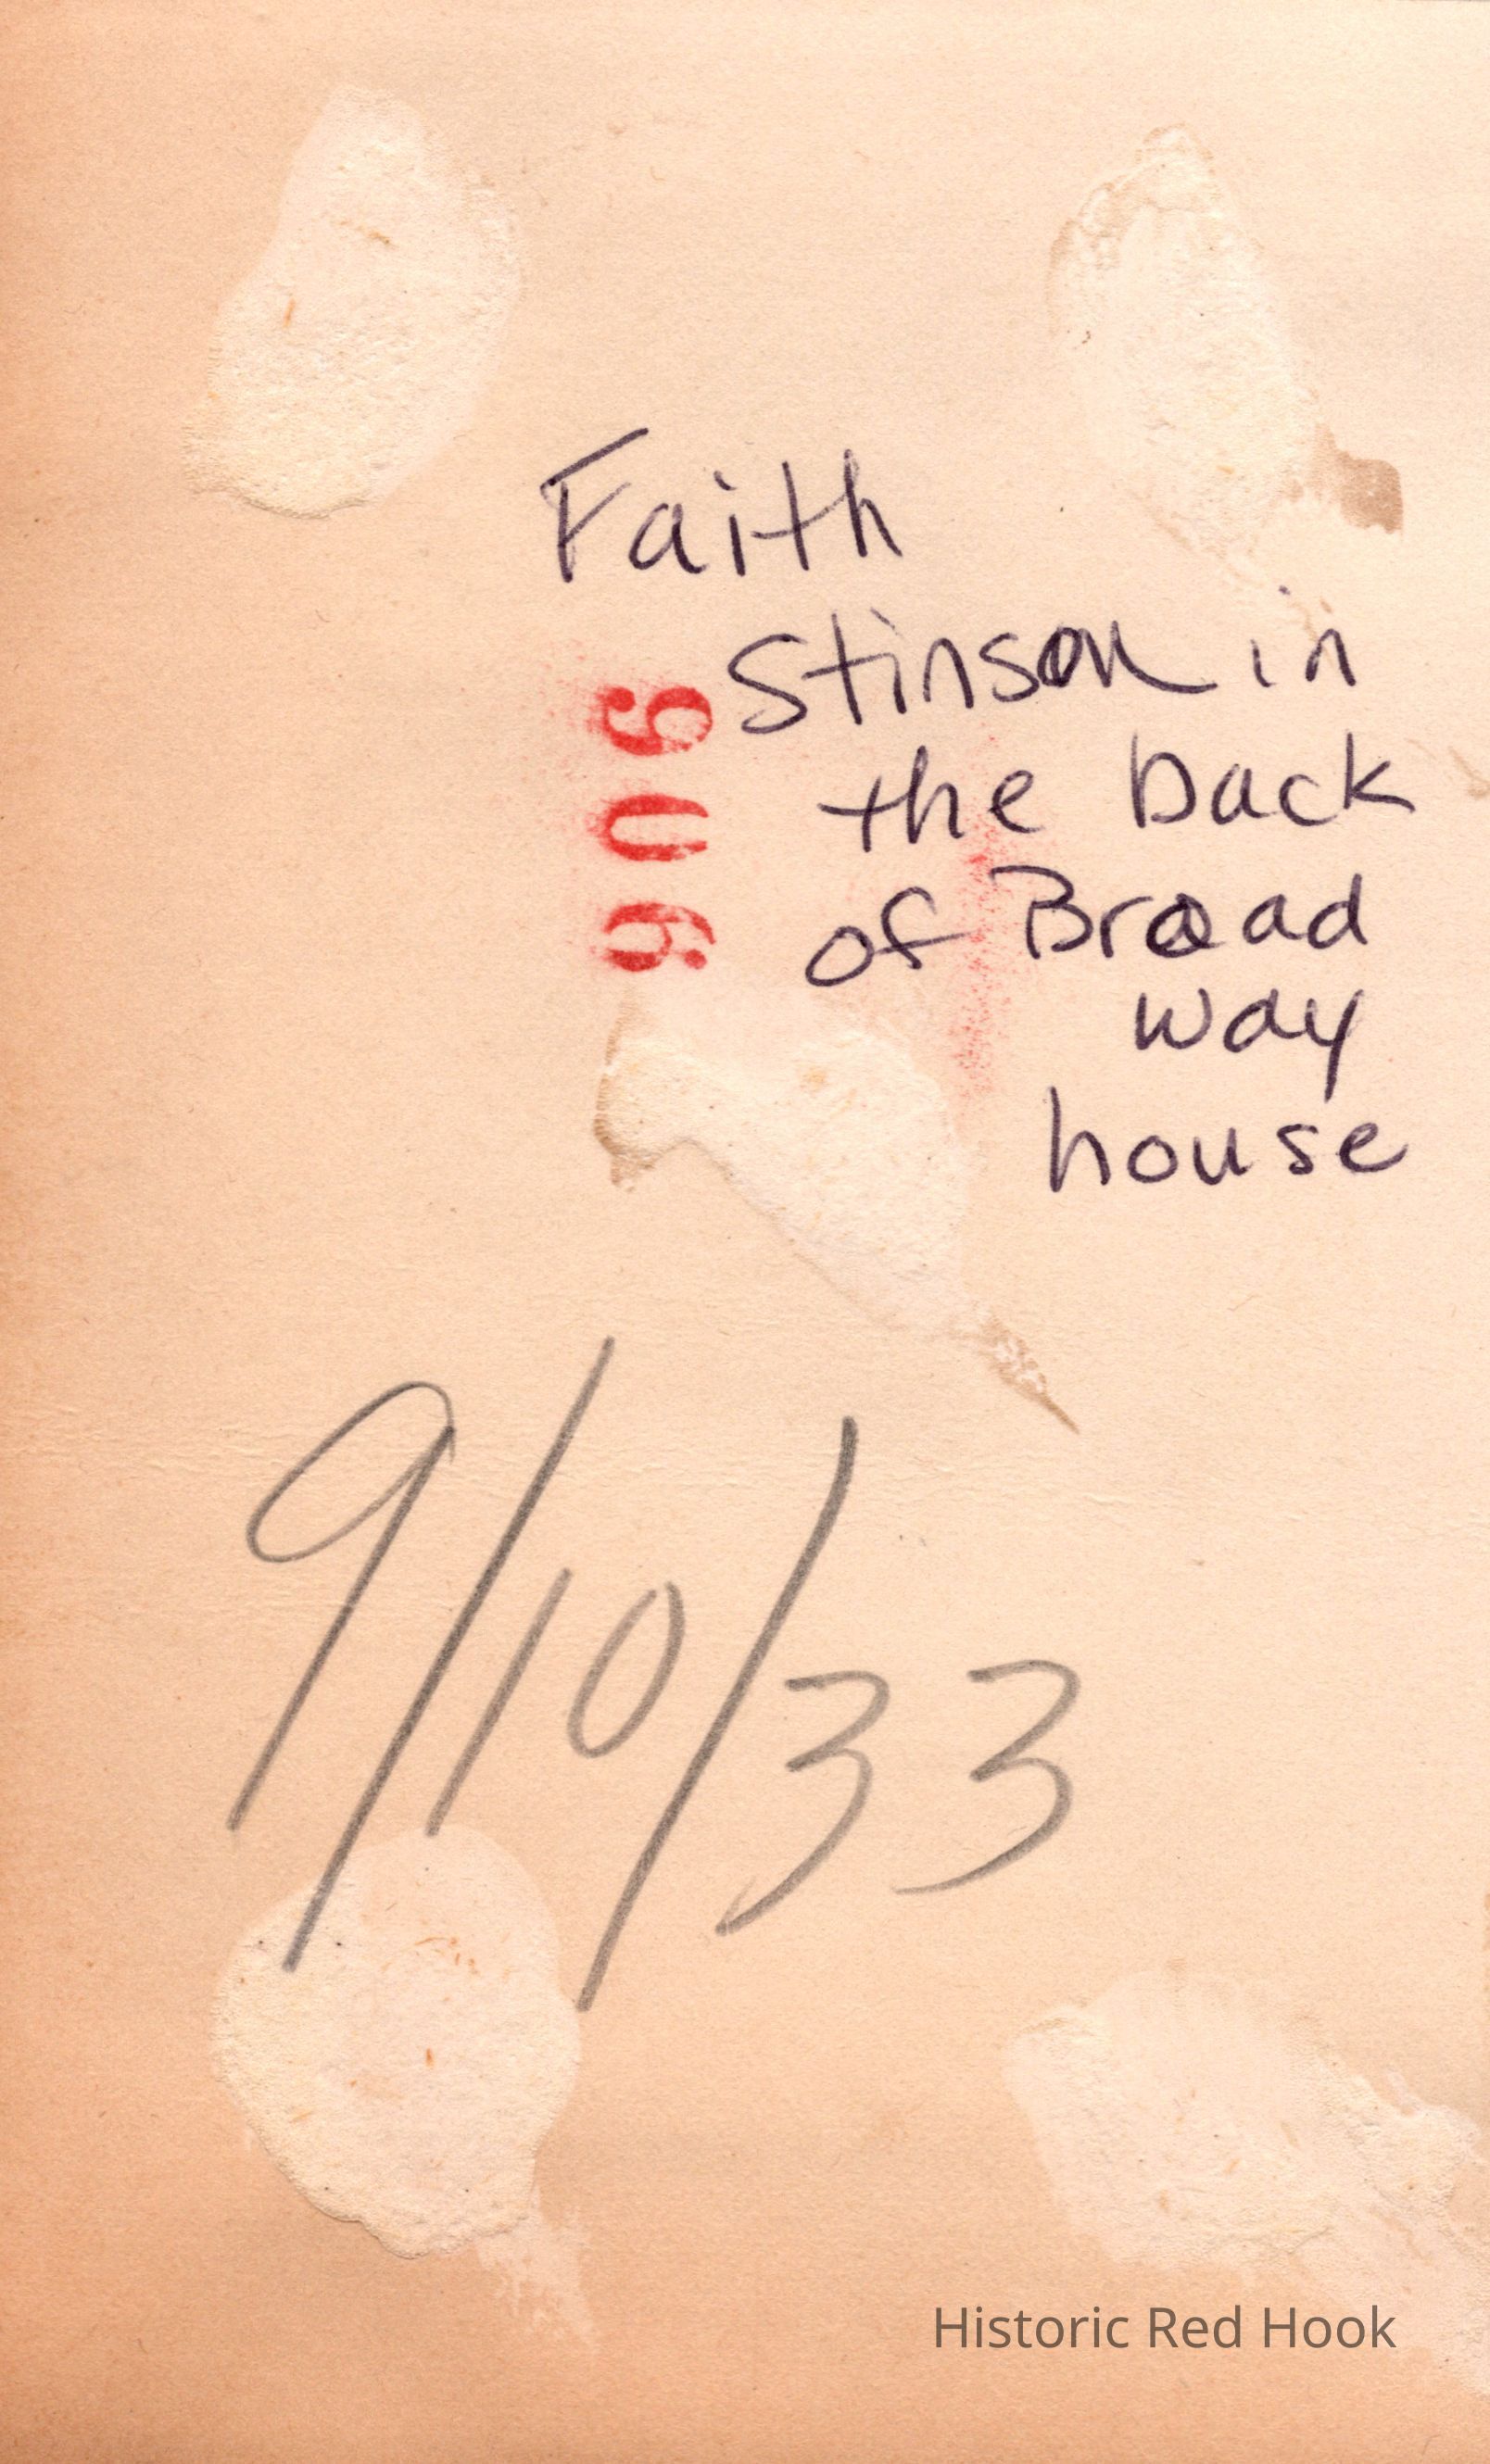 Faith
Stinson in
the back
of Broad
way
house
906
9/10/33
Historic Red Hook